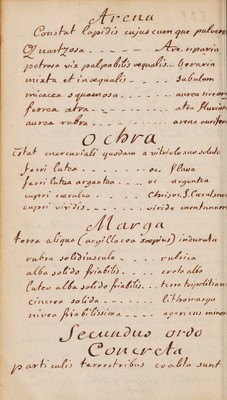 Arena
Constat lapidis cujuscumque pulvere
Quartzosa - - - - Are. riparia
petrosa vix palpabilis æqualis .. horaria
mixta et inæqualis - - Sabulum
micacea squamosa - - - aurea
ferrea atra - - - - atra
aurea rubra - - - - areno aurifera
Ochra
mercuriali quodam a vitriolo suo soluto
ferri lutea - - - - oc. flava
ferri lutea argentea - - oc argentea
cupri cærulea - - -
cupri viridis - - - - viride montanum
Marga
terra aliqua (argillacea sæpius) indurata
rubra solidiuscula - - - rubrica
alba solido friabilis - - - creta alba
luteo alba solido friabilis - - terra tripolitana
cinerea solida - - - - lithomarga
nivea friabilissima - - - agaricus miner
Secundus ordo
Concreta
particulis terrestribus coalita sunt